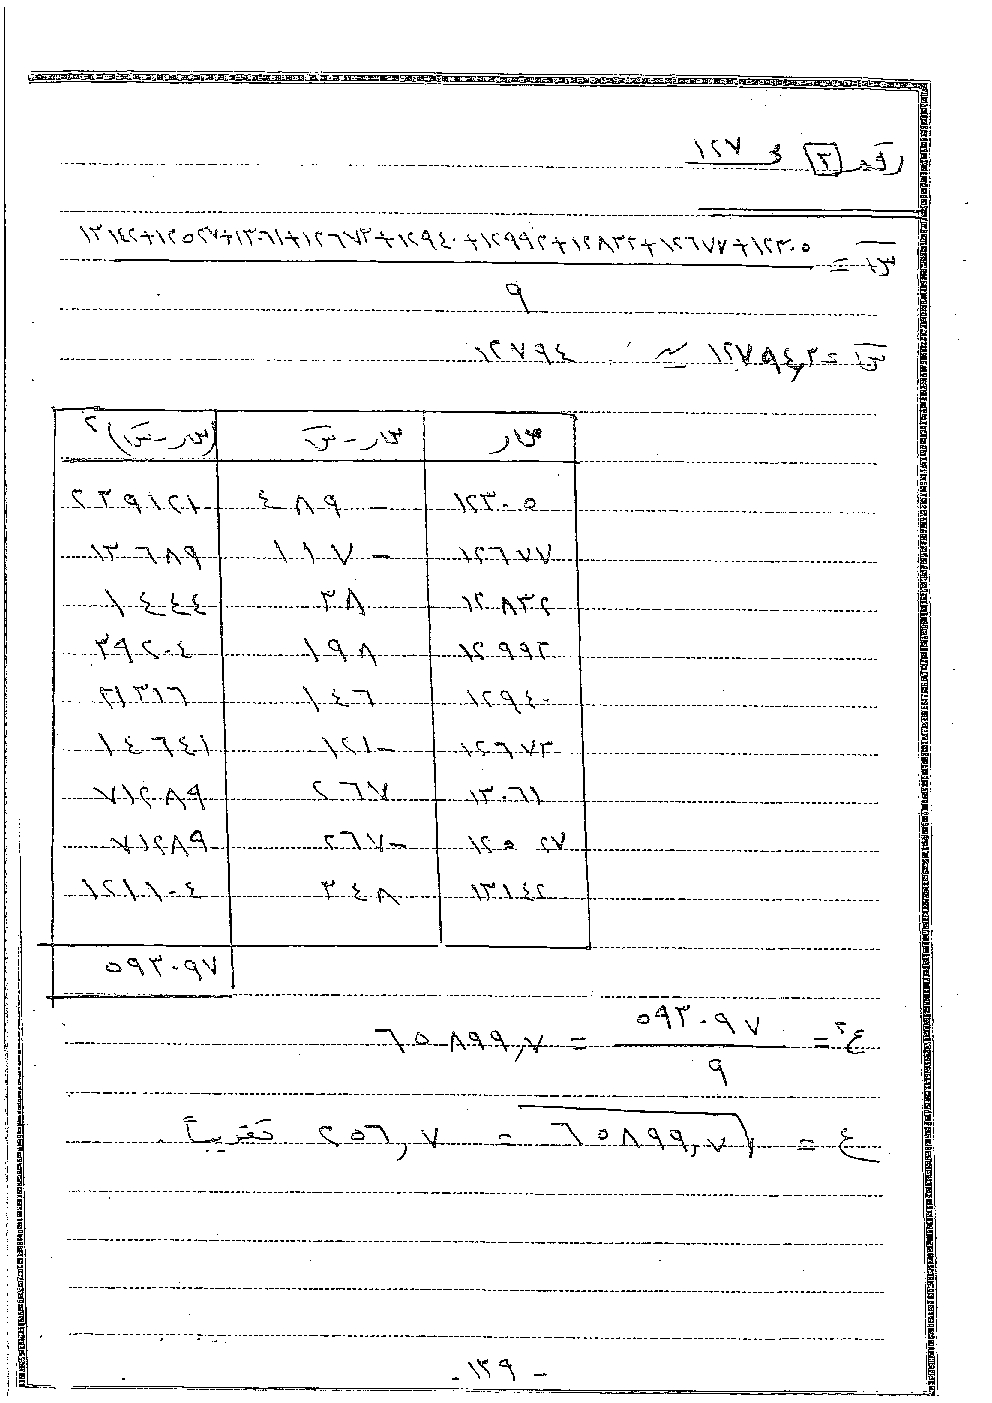 رقم ٣ ص ١٢٧
س̄ = ١٢٣٠٥+١٢٦٧٧+١٢٨٣٢+١٢٩٩٢+١٢٩٤٠+١٢٦٧٣+١٣٠٦١+١٢٥٢٧+١٣١٤٢
٩
س̄ = ١٢٧٩٤,٣ ≃ ١٢٧٩٤
س ر | س ر - س̄ | (س ر - س̄)٢
١٢٣٠٥ | - ٤٨٩ | ٢٣٩١٢١
١٢٦٧٧ | - ١١٧ | ١٣٦٨٩
١٢٨٣٢ | ٣٨ | ١٤٤٤
١٢٩٩٢ | ١٩٨ | ٣٩٢٠٤
١٢٩٤٠ | ١٤٦ | ٢١٣١٦
١٢٦٧٣ | - ١٢١ | ١٤٦٤١
١٣٠٦١ | ٢٦٧ | ٧١٢٨٩
١٢٥٢٧ | - ٢٦٧ | ٧١٢٨٩
١٣١٤٢ | ٣٤٨ | ١٢١١٠٤
٥٩٣٠٩٧
ع٢ = ٥٩٣٠٩٧ / ٩ = ٦٥٨٩٩,٧
ع = √٦٥٨٩٩,٧ = ٢٥٦,٧ تقريباً .
- ١٣٩ -